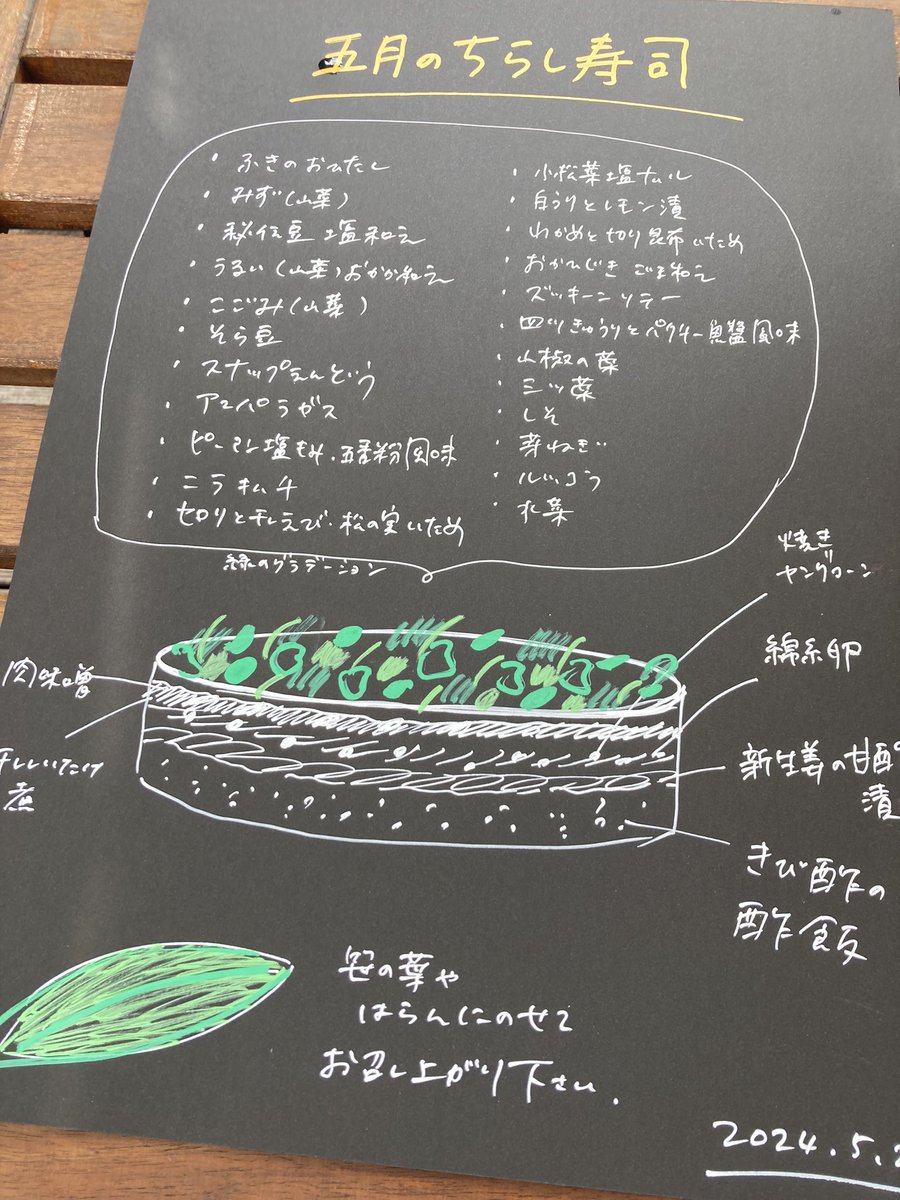 五月のちらし寿司
・ふきのおひたし
・みず(山菜)
・秘伝豆 塩和え
・うるい(山菜)おかか和え
・こごみ(山菜)
・そら豆
・スナップえんどう
・アスパラガス
・ピーマン塩もみ・五香粉風味
・ニラキムチ
・セロリと干しえび・松の実いため
・小松菜塩ナムル
・白うりとレモン漬
・わかめと切り昆布いため
・おかひじき ごま和え
・ズッキーニソテー
・四川きゅうりとパクチー魚醤風味
・山椒の葉
・三ツ葉
・しそ
・芽ねぎ
・ルッコラ
・水菜
緑のグラデーション
焼き
ヤングコーン
肉味噌
綿糸卵
干ししいたけ
煮
新生姜の甘酢
漬
きび酢の
酢飯
笹の葉や
はらんにのせて
お召し上がり下さい.
2024.5.2